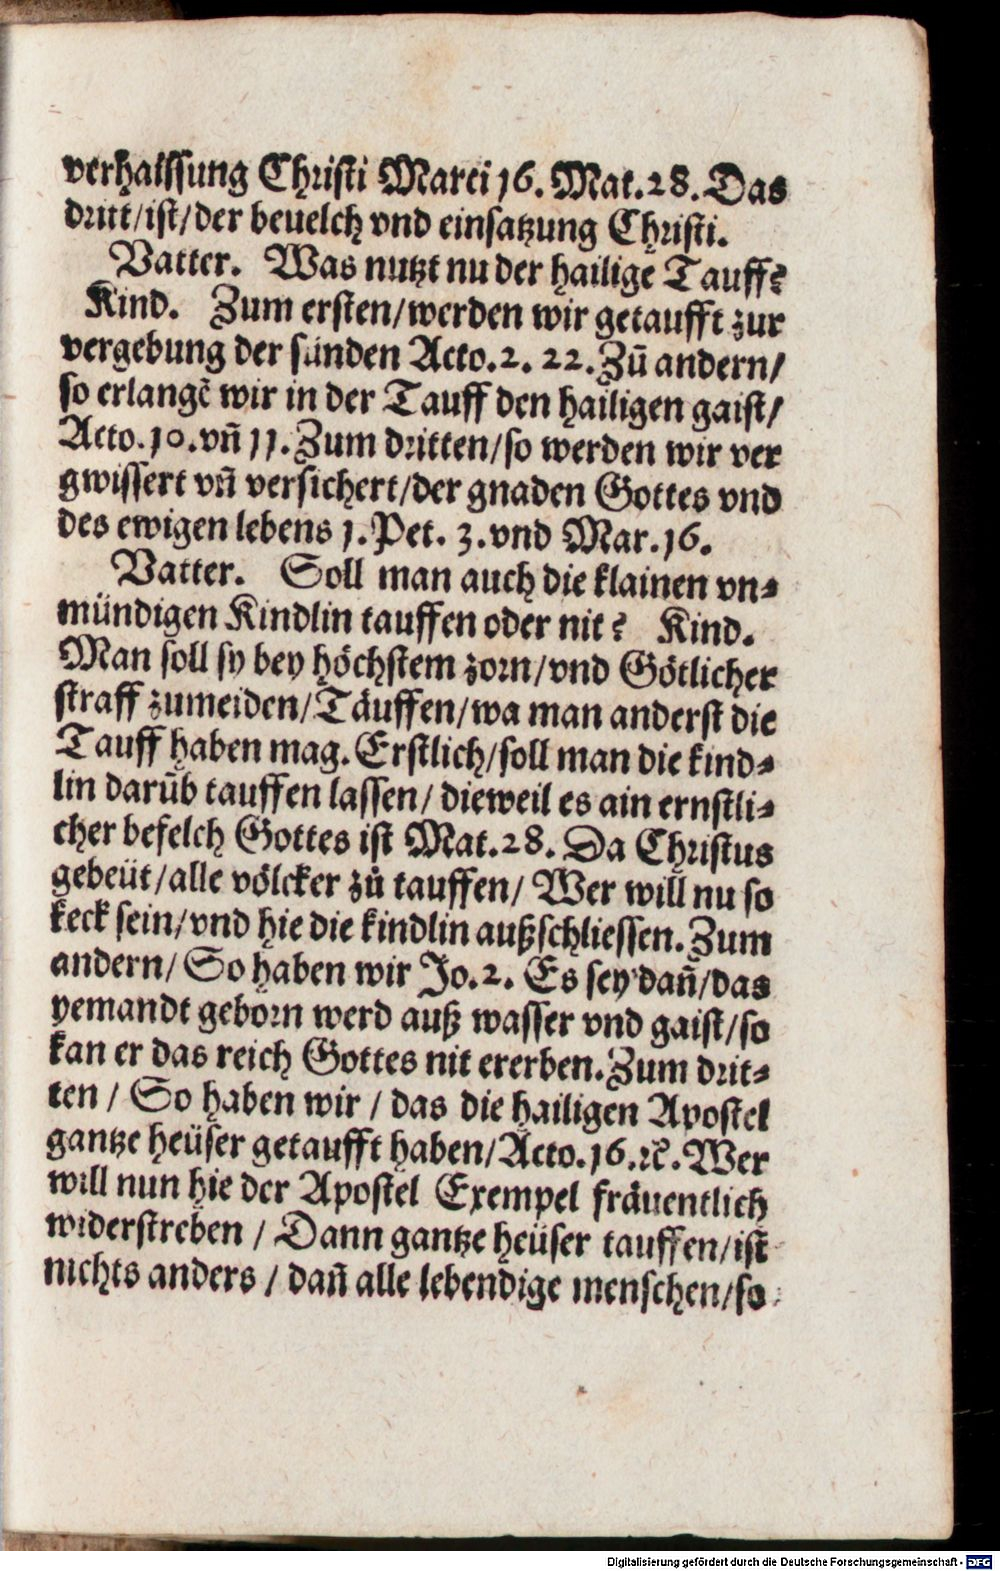 verhaissung Christi Marci 16. Mat. 28. Das
dritt/ist/der beuelch vnd einsatzung Christi.
Vatter. Was nutzt nu der hailige Tauff?
Kind. Zum ersten/werden wir getaufft zur
vergebung der sünden Acto. 2. 22. Zū andern/
so erlangē wir in der Tauff den hailigen gaist/
Acto. 10. vñ 11. Zum dritten/so werden wir ver
gwissert vñ versichert/der gnaden Gottes vnd
des ewigen lebens 1. Pet. 3. vnd Mar. 16.
Vatter. Soll man auch die klainen vn⸗
mündigen Kindlin tauffen oder nit? Kind.
Man soll sy bey höchstem zorn/vnd Götlicher
straff zumeiden/Täuffen/wa man anderst die
Tauff haben mag. Erstlich/soll man die kind⸗
lin darūb tauffen lassen/ dieweil es ain ernstli⸗
cher befelch Gottes ist Mat. 28. Da Christus
gebeüt/alle völcker zů tauffen/ Wer will nu so
keck sein/vnd hie die kindlin außschliessen. Zum
andern/ So haben wir Jo. 2. Es sey dañ/das
yemandt geborn werd auß wasser vnd gaist/so
kan er das reich Gottes nit ererben. Zum drit⸗
ten / So haben wir / das die hailigen Apostel
gantze heüser getaufft haben/Acto. 16. ꝛc̄. Wer
will nun hie der Apostel Exempel fräuentlich
widerstreben / Dann gantze heüser tauffen/ist
nichts anders / dañ alle lebendige menschen/so
Digitalisierung gefördert durch die Deutsche Forschungsgemeinschaft - DFG